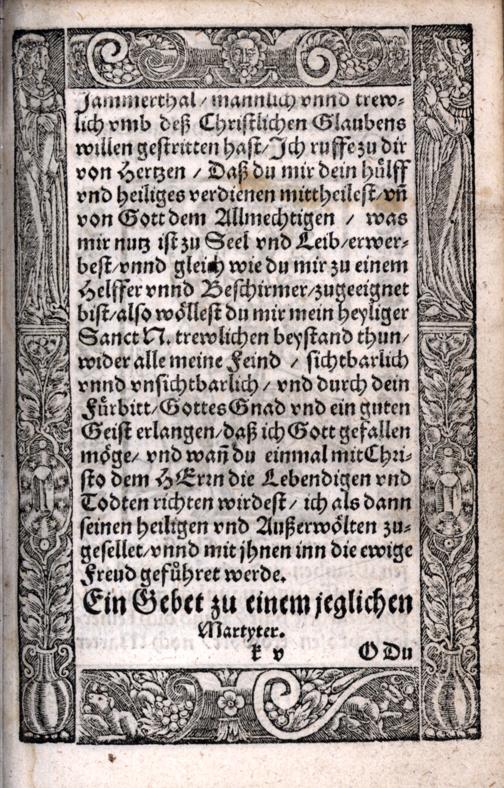 Jammerthal / mannlich vnnd trew⸗
lich vmb deß Christlichen Glaubens
willen gestritten hast / Ich ruffe zu dir
von Hertzen / Daß du mir dein hülff
vnd heiliges verdienen mittheilest / vñ
von Gott dem Allmechtigen / was
mir nutz ist zu Seel vnd Leib / erwer⸗
best / vnnd gleich wie du mir zu einem
Helffer vnnd Beschirmer / zugeeignet
bist / also wöllest du mir mein heyliger
Sanct N. trewlichen beystand thun /
wider alle meine Feind / sichtbarlich
vnnd vnsichtbarlich / vnd durch dein
Fürbitt / Gottes Gnad vnd ein guten
Geist erlangen / daß ich Gott gefallen
möge / vnd wañ du einmal mit Chri⸗
sto dem HErrn die Lebendigen vnd
Todten richten wirdest / ich als dann
seinen heiligen vnd Außerwölten zu⸗
gesellet / vnnd mit jhnen inn die ewige
Freud geführet werde.
Ein Gebet zu einem jeglichen
Martyrer.
k v O Du